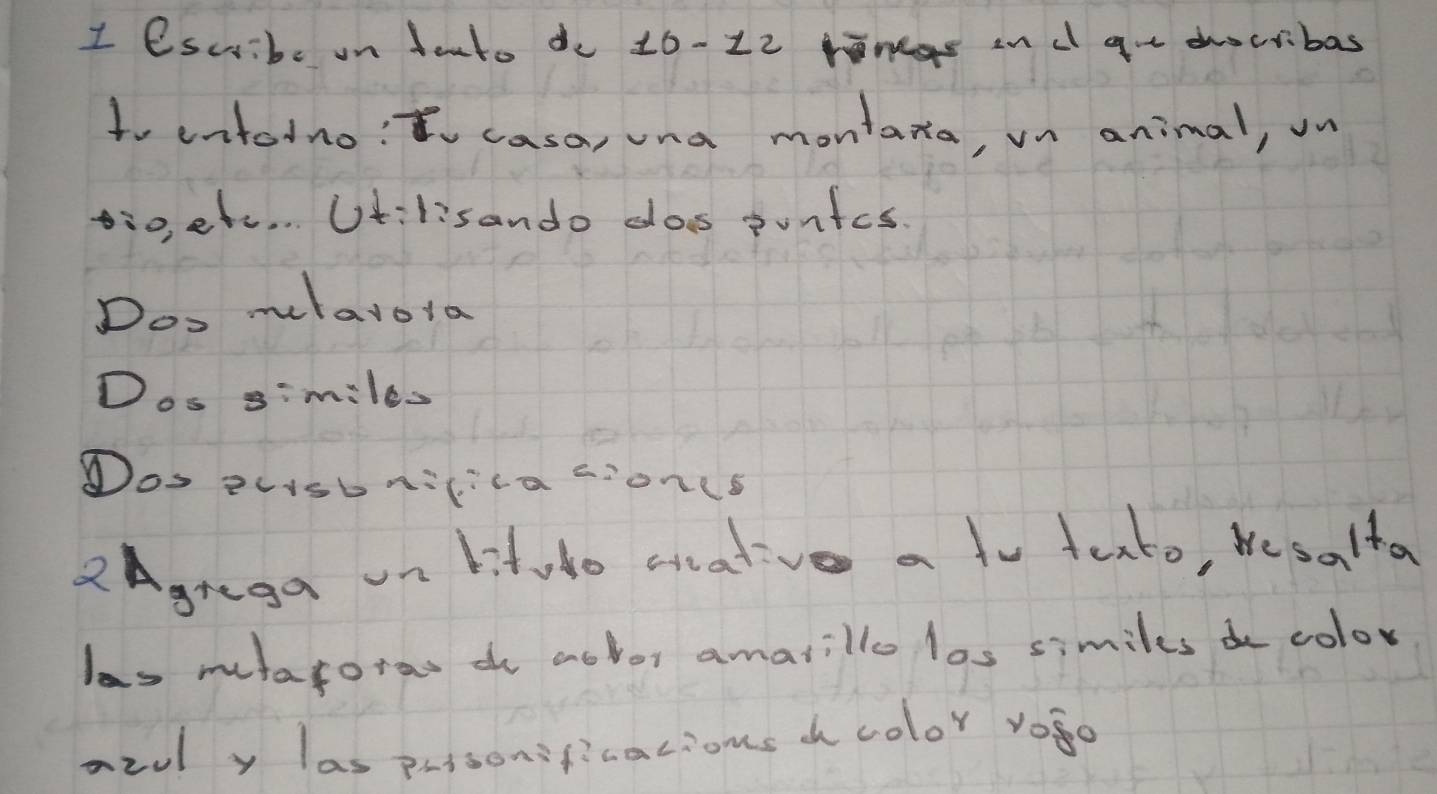 1 Escribe un texto de 10-12 líneas en el que describas
tu entorno: Tu casa, una montaña, un animal, un
rio, etc... Utilisando dos puntos.
Dos metarora
Dos similes
Dos personificaciones
2 Agrega un titulo creativo a tu texto, Resalta
las metaforas de color amarillo los similes de color
azul y las personificacions de color rojo